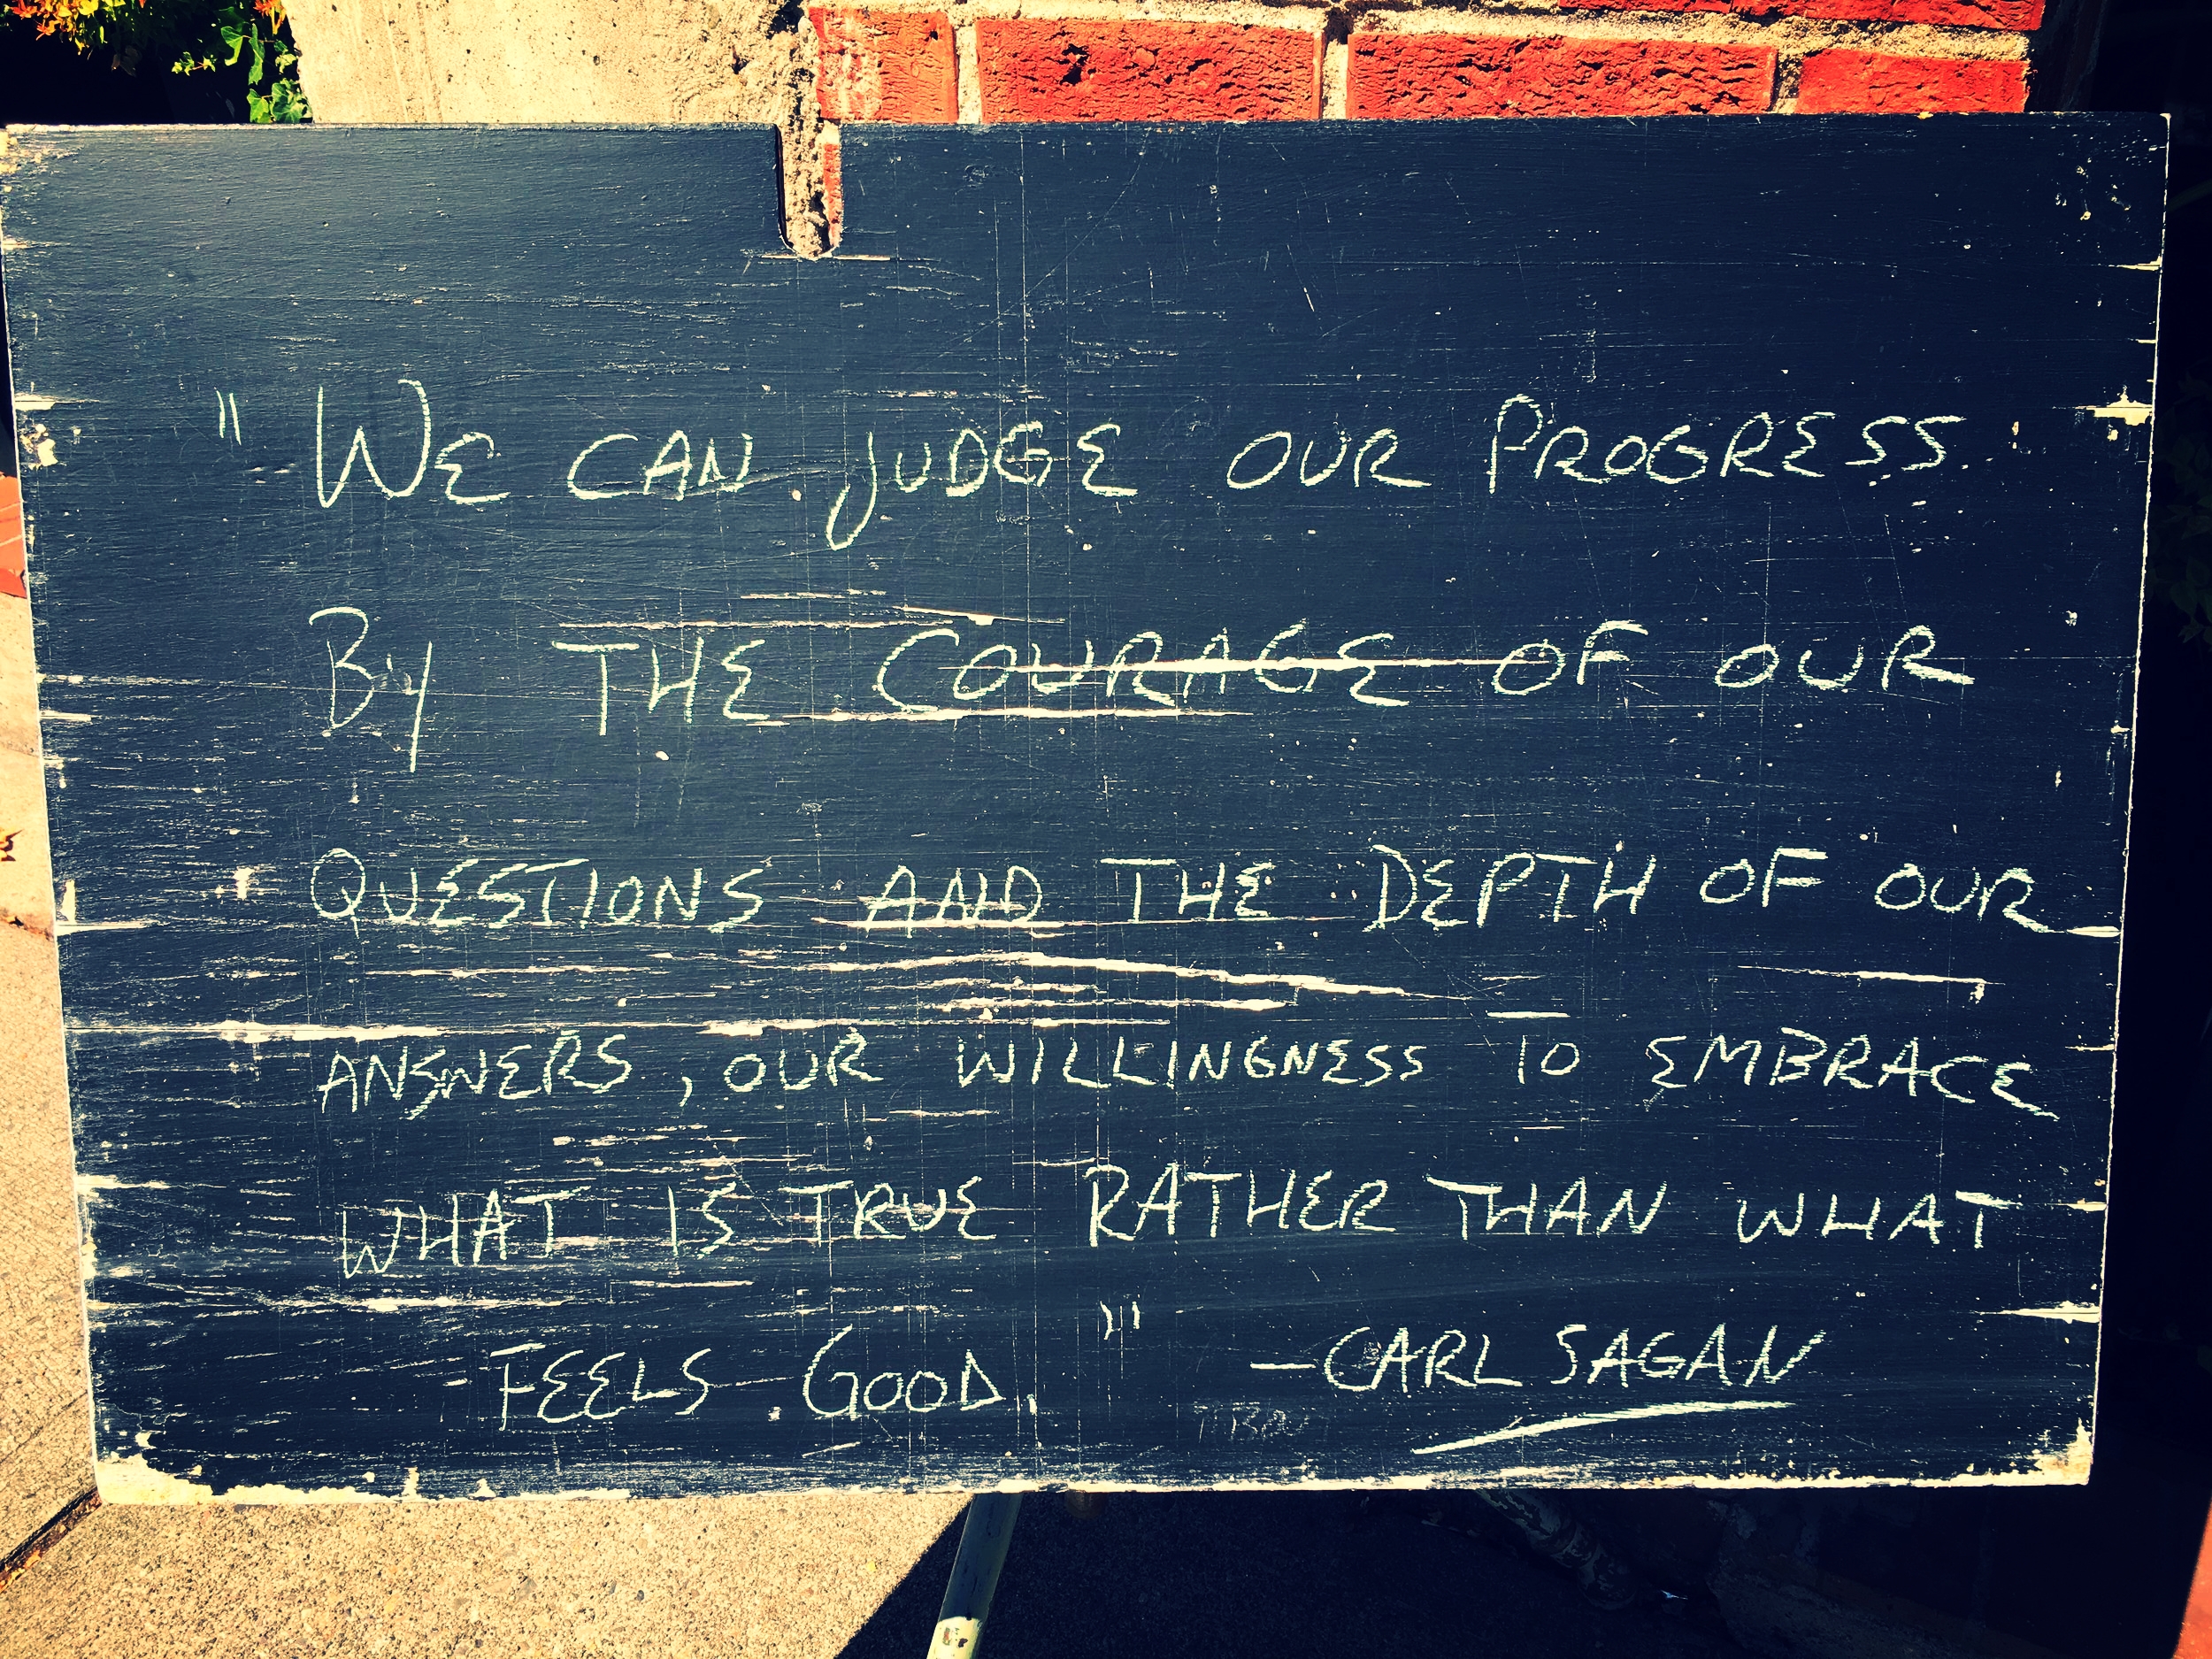 "We can judge our Progress
By THE COURAGE OF OUR
QUESTIONS AND THE DEPTH OF OUR
ANSWERS, OUR WILLINGNESS TO EMBRACE
WHAT IS TRUE RATHER THAN WHAT
FEELS GOOD." —CARL SAGAN